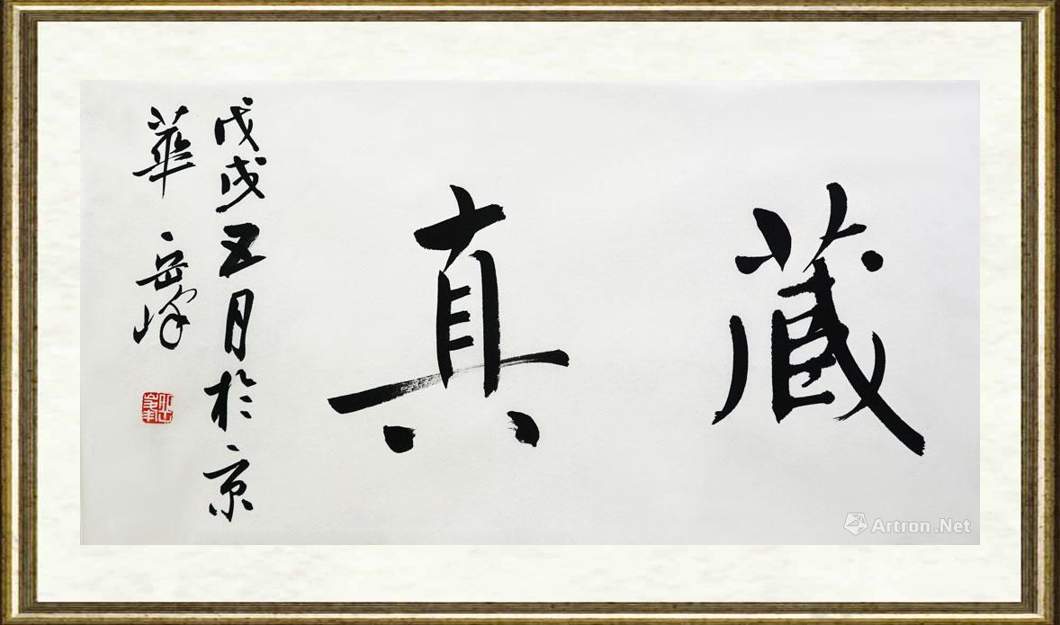 藏真
戊戌五月於京
華 岳峰
Artron.Net